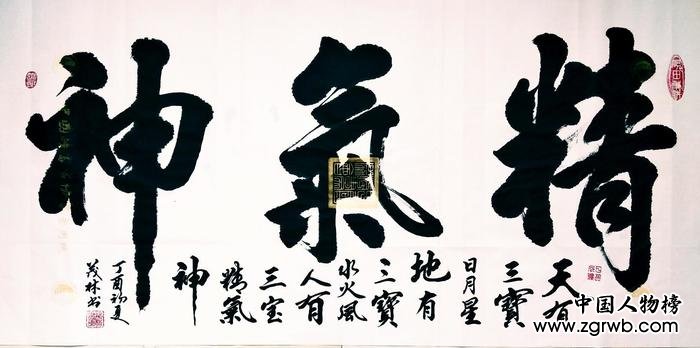 精氣神
天有
三寳
日月星
地有
三寳
水火風
人有
三宝
精氣
神
丁酉初夏
茂林书
中国人物榜
www.zgrwb.com